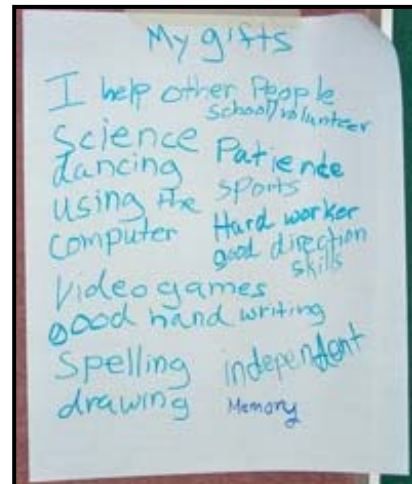 My gifts
I help other People
school/volunteer
Science
dancing
using the
computer
Patience
sports
Hard worker
good direction
skills
Videogames
good hand writing
Spelling
drawing
independent
Memory